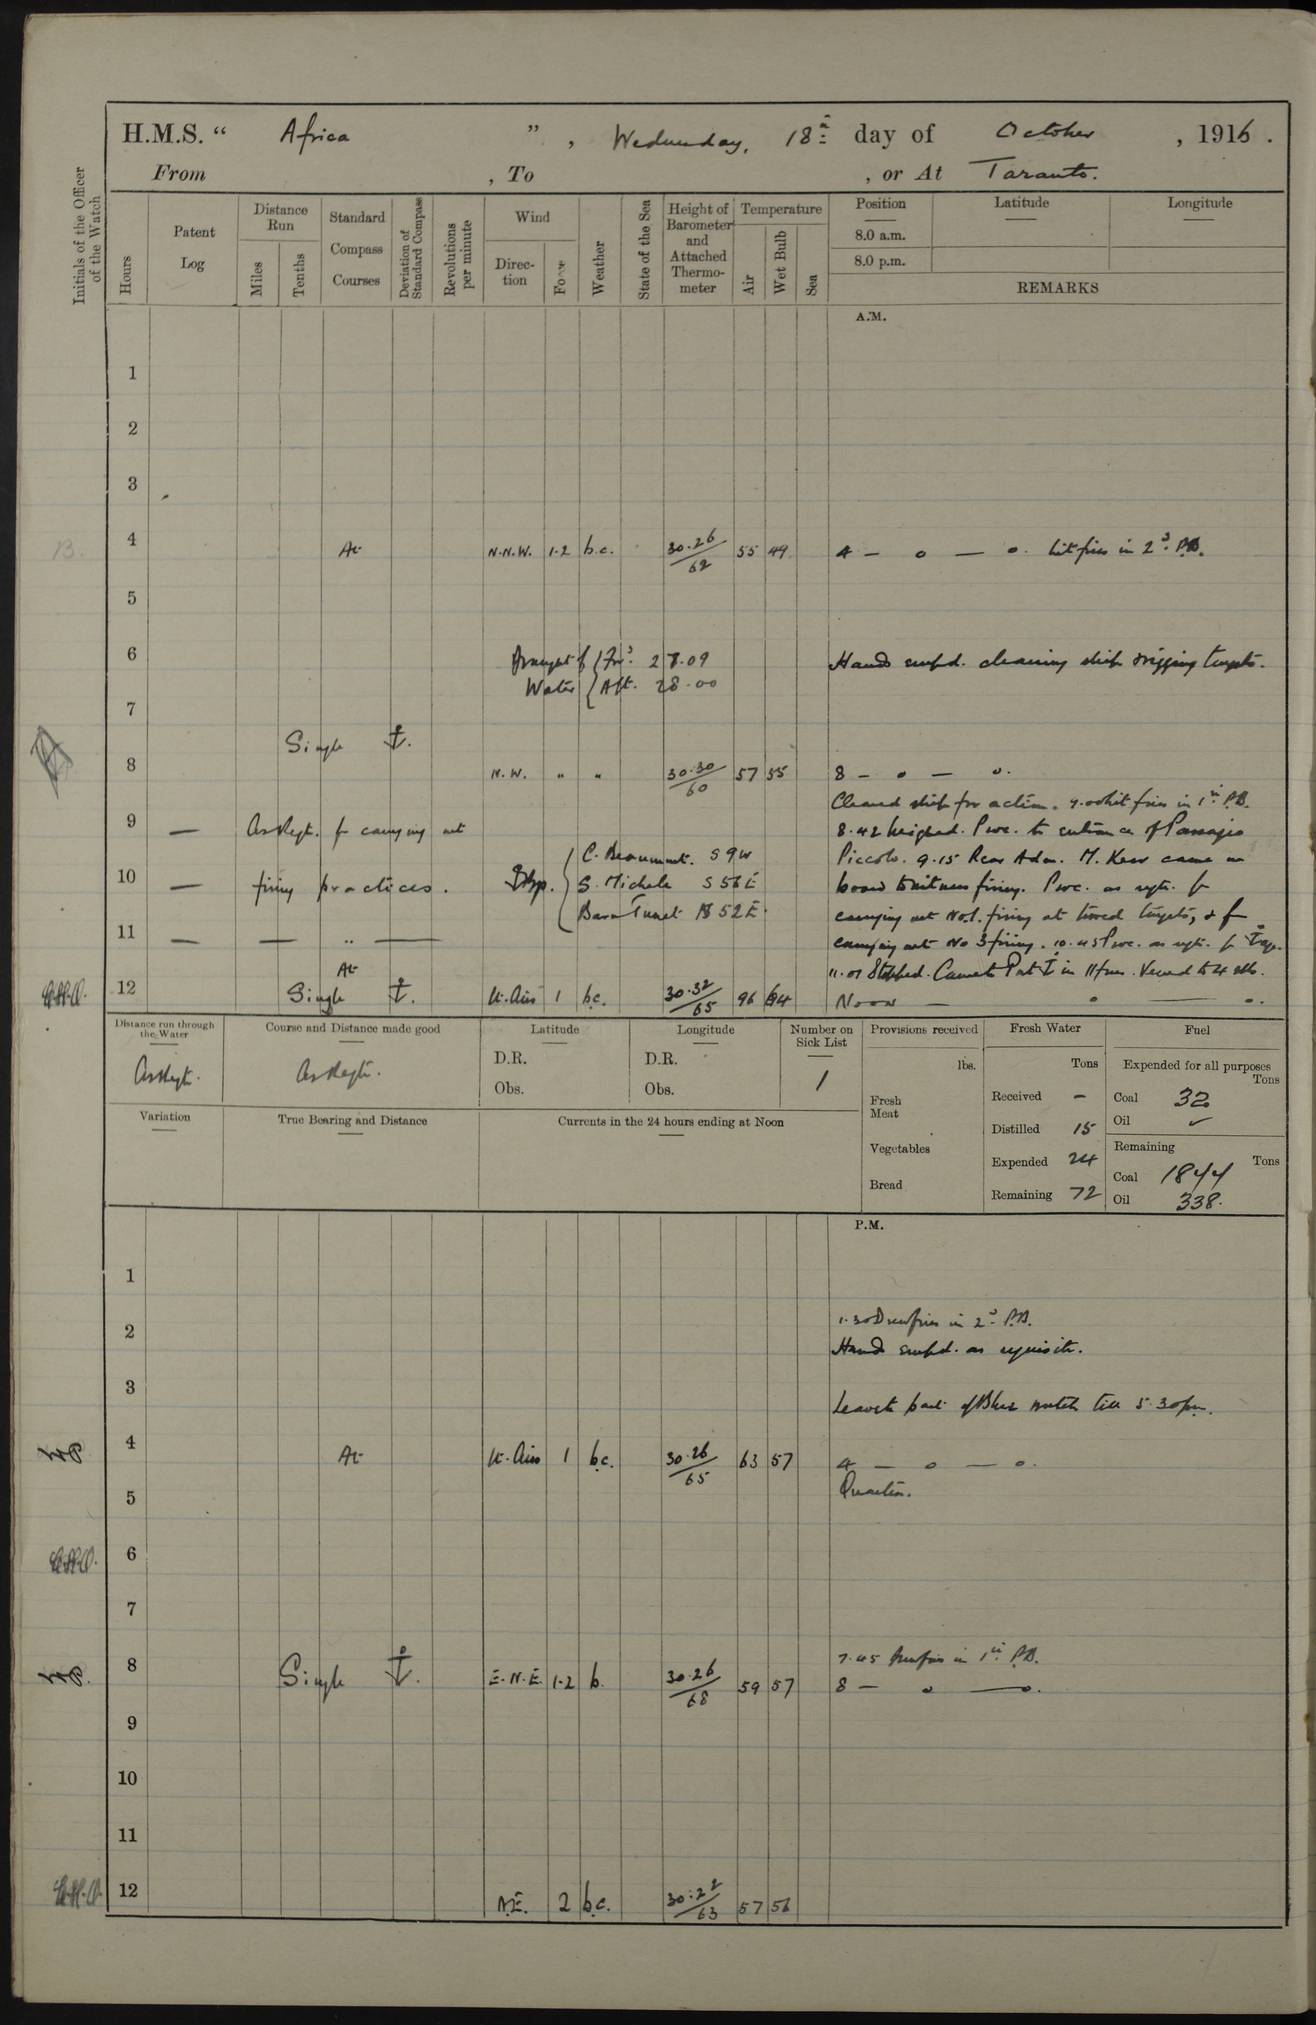 H.M.S. " Africa ", Wednesday, 18th day of October, 1916.
From , To , or At Taranto.
Initials of the Officer of the Watch
Hours
Patent Log
Distance Run
Miles
Tenths
Standard Compass Courses
Deviation of Standard Compass
Revolutions per minute
Wind
Direction
Force
Weather
State of the Sea
Height of Barometer and Attached Thermometer
Temperature
Air
Wet Bulb
Sea
Position
Latitude
Longitude
8.0 a.m.
8.0 p.m.
REMARKS
A.M.
1
2
3
B. 4 At N.N.W. 1.2 b.c. 30.26/62 55 49 4 — o — o. Lit fires in 2d. P.B.
5
6 Draught of Water { Ford. 27.09 Hands empd. cleaning ship & rigging targets.
Aft. 28.00
7
Single ⚓.
8 N.W. " " 30.30/60 57 55 8 — o — o.
Cleared ship for action. 7.00 Lit fires in 1st P.B.
9 — As Reqt. for carrying out 8.42 Weighed. Proc. to entrance of Passagio
C. Beaumont. S 9 W Piccolo. 9.15 Rear Adm. M. Kerr came on
10 — firing practices. Disp. { S. Michele S 56 E board to witness firing. Proc. as reqte. for
S 52 E. carrying out No.1. firing at towed targets, & for
11 — — " — carrying out No 3 firing. 10.45 Proc. as reqte. for ⚓age.
At 11.01 Stopped. Came to Port ⚓ in 11 fms. Veered to 4 shs.
12 Single ⚓. Lt. Airs 1 b.c. 30.32/65 Noon — o — o.
Distance run through the Water
As Reqte.
Course and Distance made good
As Reqte.
Latitude
D.R.
Obs.
Longitude
D.R.
Obs.
Number on Sick List
1
Provisions received
lbs.
Fresh Meat
Vegetables
Bread
Fresh Water
Tons
Received —
Distilled 15
Expended 24
Remaining 72
Fuel
Expended for all purposes
Tons
Coal 32
Oil ✓
Remaining
Tons
Coal 1844
Oil 338.
Variation
True Bearing and Distance
Currents in the 24 hours ending at Noon
P.M.
1
1.30 Drew fires in 2d P.B.
2 Hands empd. as requisite.
3 Leave to part of Blue watch till 5.30 pm.
4 At Lt. Airs 1 b.c. 30.26/65 63 57 4 — o — o.
Quarters.
5
6
7
7.45 Drew fires in 1st P.B.
8 Single ⚓. E.N.E. 1.2 b. 30.26/68 59 57 8 — o — o.
9
10
11
12 N.E. 2 b.c. 30.22/63 57 56